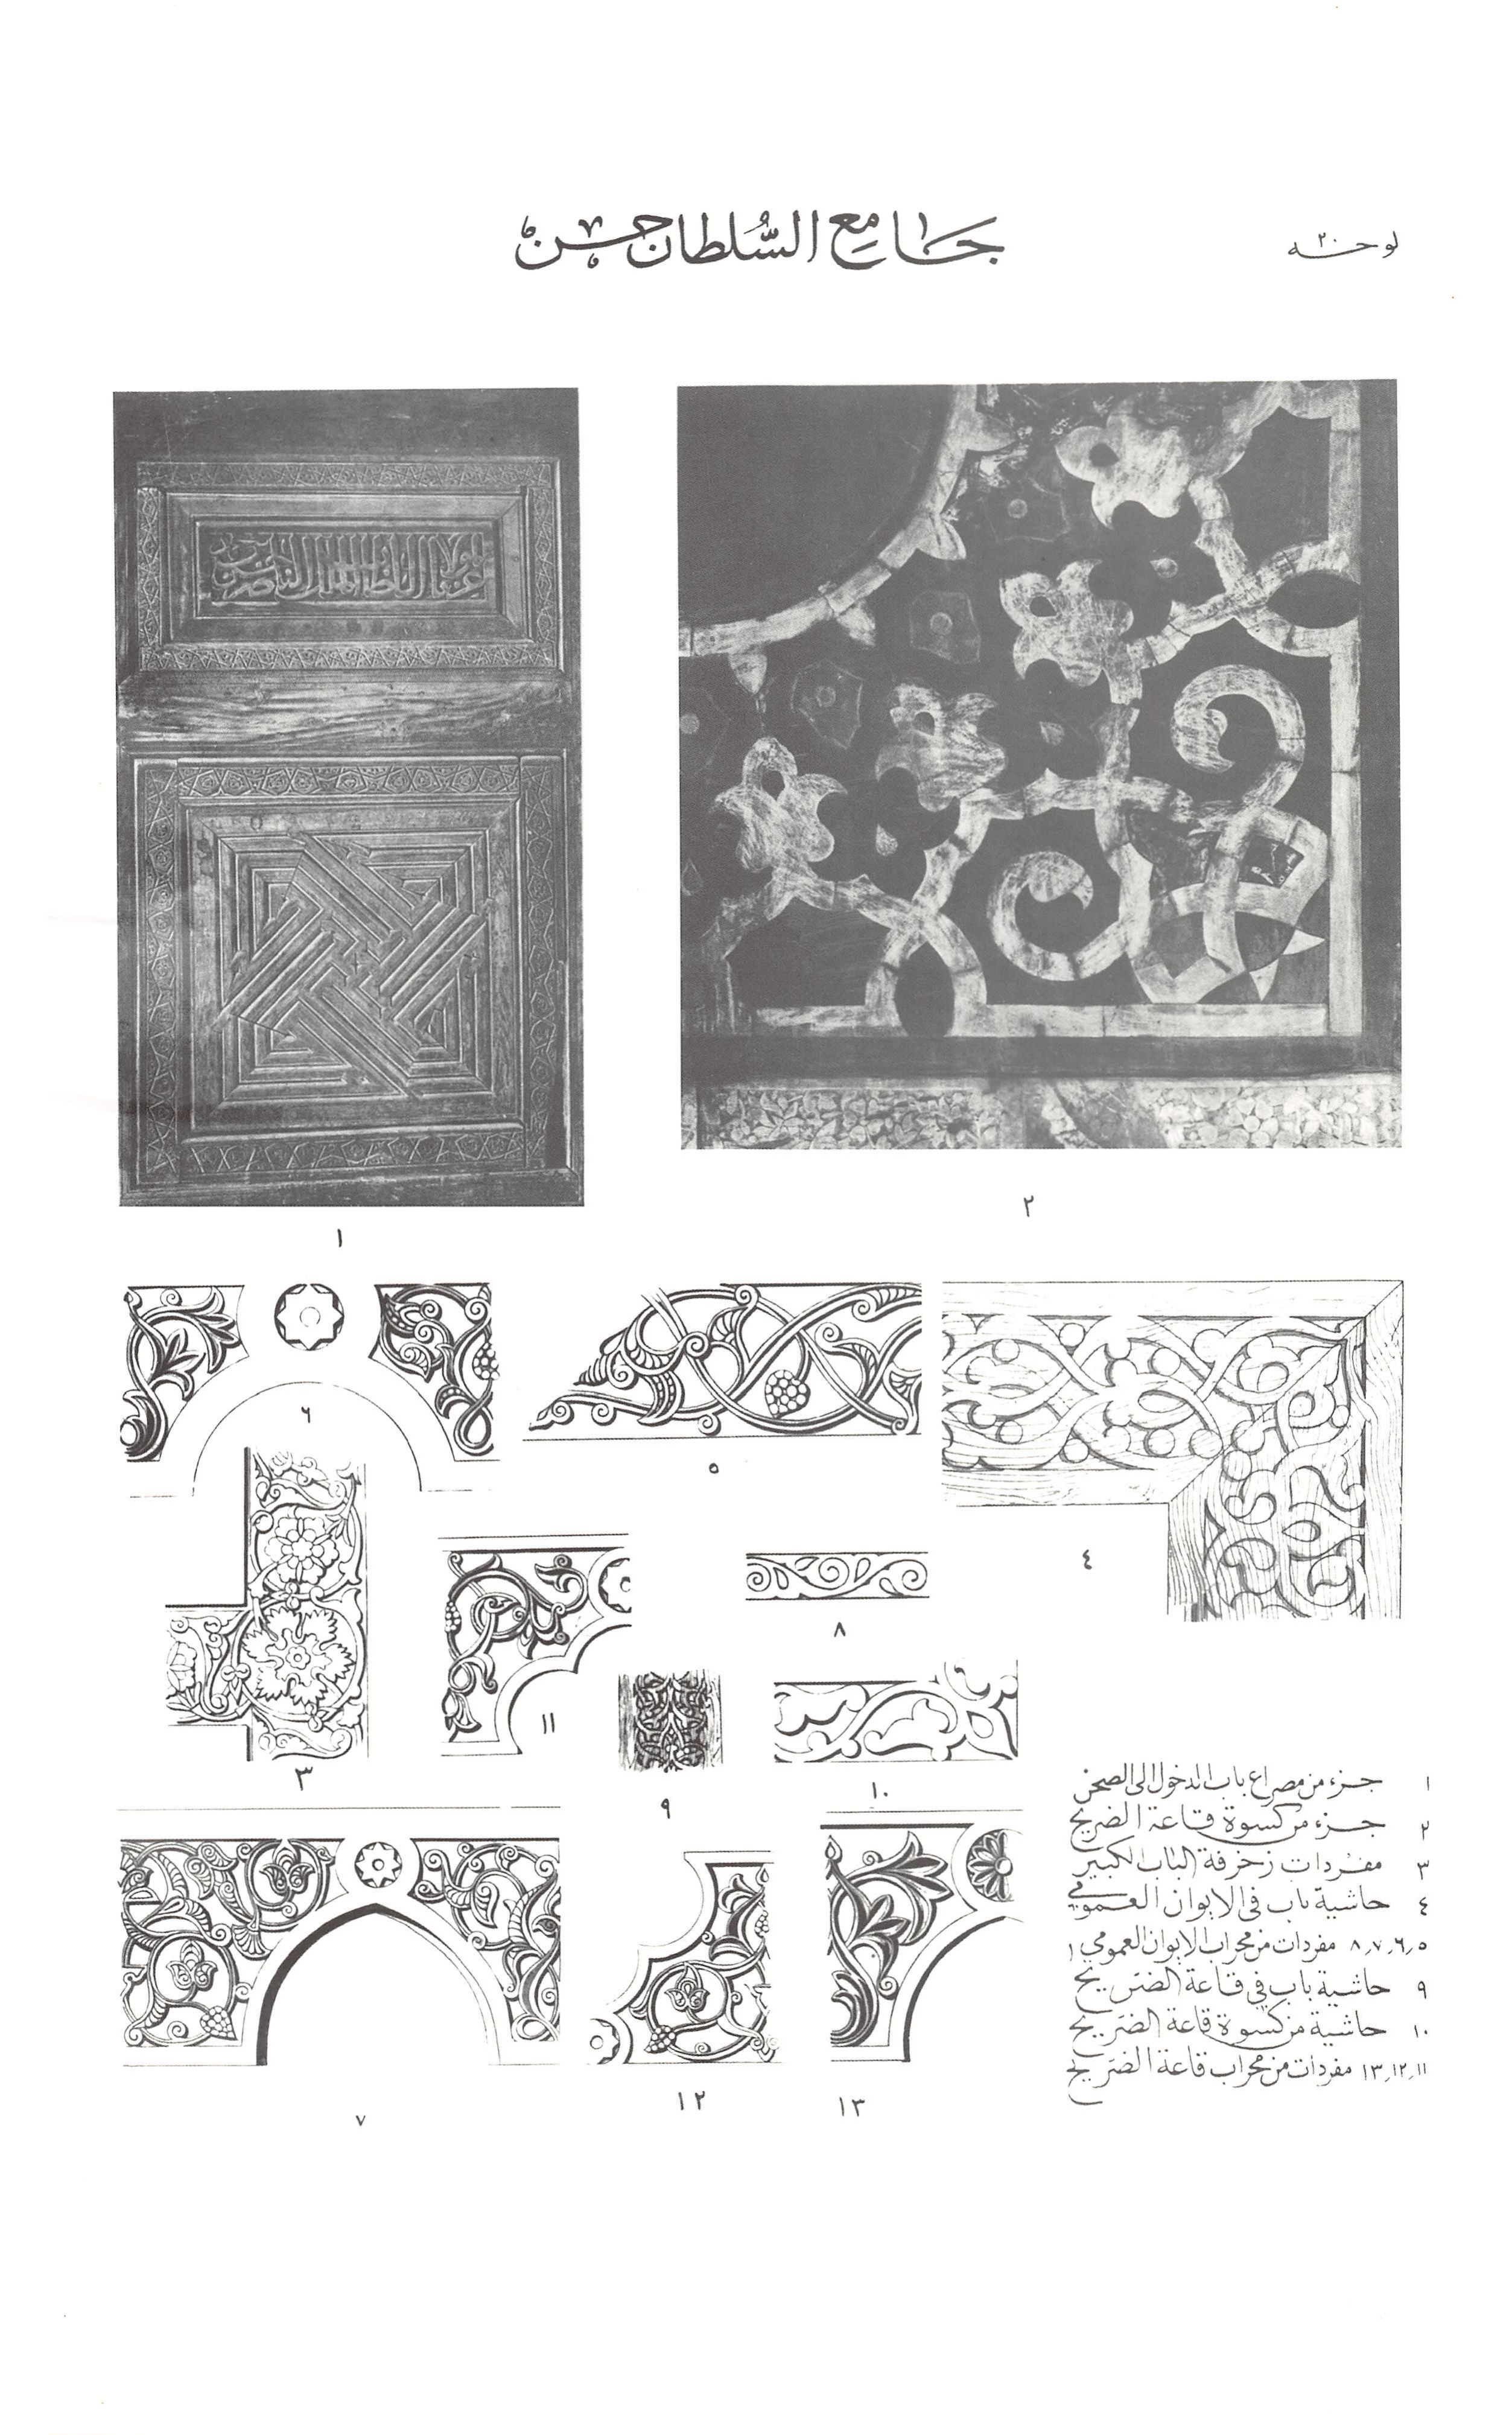 لوحه ٢٠
جامع السُّلطان حسن
١
٢
٦
٥
٤
٨
١١
٣
٩
١٠
٧
١٢
١٣
١ جزء من مصراع باب الدخول الى الصحن
٢ جزء من كسوة قاعة الضريح
٣ مفردات زخرفة الباب الكبير
٤ حاشية باب فى الايوان العمومى
٥,٦,٧,٨ مفردات من محراب الايوان العمومي
٩ حاشية باب في قاعة الضريح
١٠ حاشية من كسوة قاعة الضريح
١١,١٢,١٣ مفردات من محراب قاعة الضريح